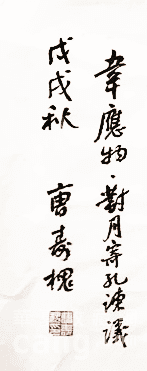 韋應物·對月寄孔諫議
戊戌秋 曹壽槐